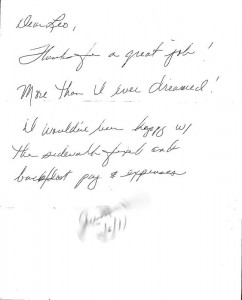 Dear Leo,
Thanks for a great job!
More than I ever dreamed!
I would've been happy w/
the sidewalk fixed and
pay & expenses